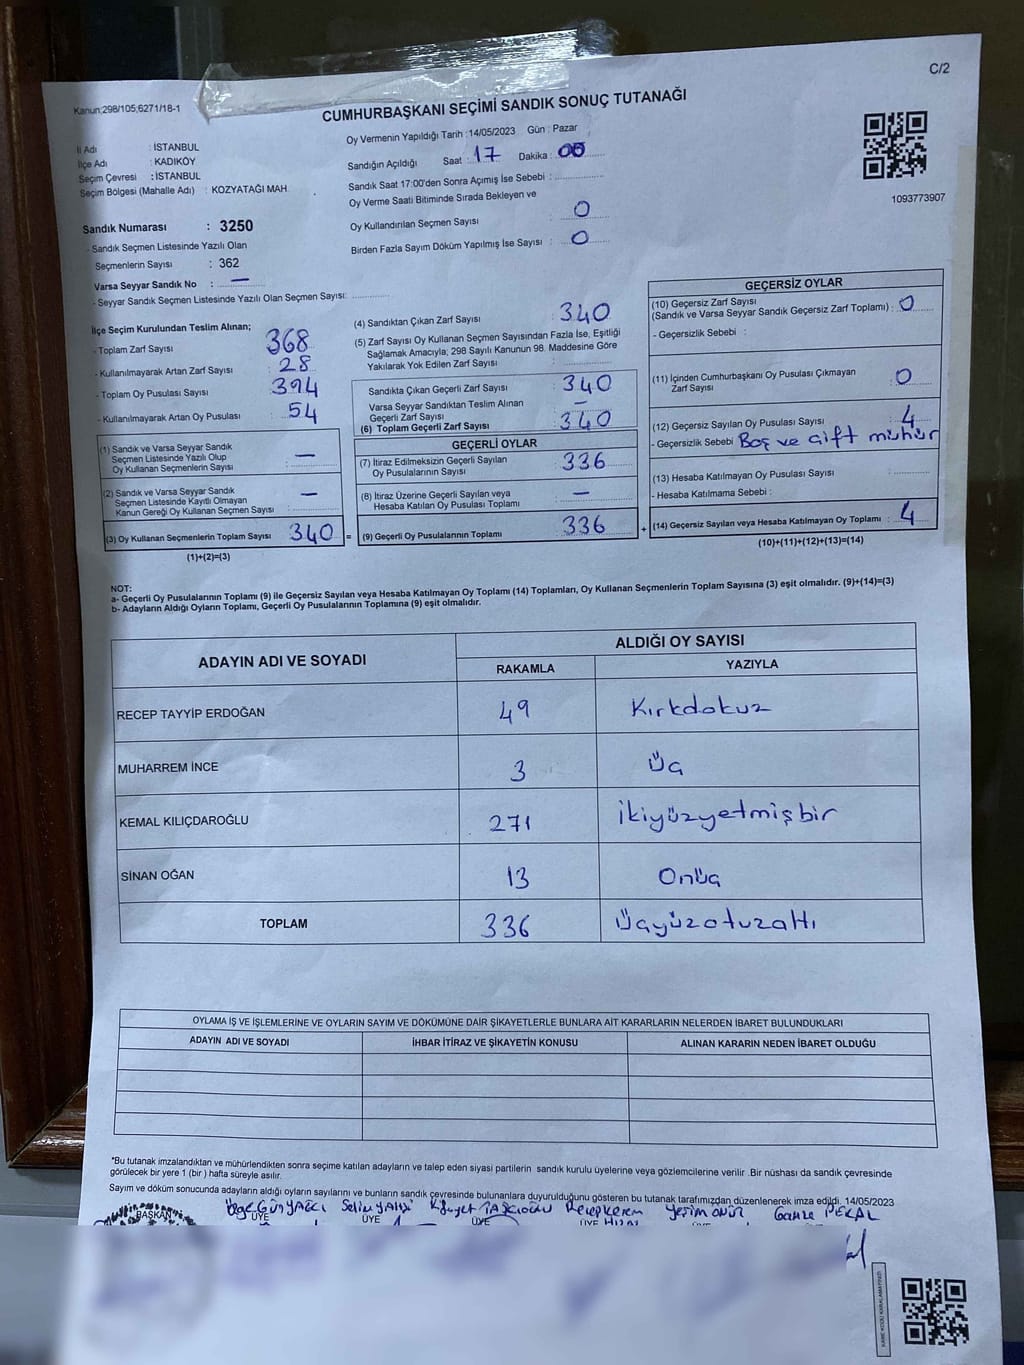 C/2
Kanun;298/105;6271/18-1
CUMHURBAŞKANI SEÇİMİ SANDIK SONUÇ TUTANAĞI
İl Adı : İSTANBUL
İlçe Adı : KADIKÖY
Seçim Çevresi : İSTANBUL
Seçim Bölgesi (Mahalle Adı) : KOZYATAĞI MAH.
Oy Vermenin Yapıldığı Tarih : 14/05/2023 Gün : Pazar
Sandığın Açıldığı Saat : 17 Dakika : 00
Sandık Saat 17:00'den Sonra Açımış İse Sebebi :
Oy Verme Saati Bitiminde Sırada Bekleyen ve
Oy Kullandırılan Seçmen Sayısı : 0
Birden Fazla Sayım Döküm Yapılmış İse Sayısı : 0
1093773907
Sandık Numarası : 3250
- Sandık Seçmen Listesinde Yazılı Olan
Seçmenlerin Sayısı : 362
Varsa Seyyar Sandık No : —
- Seyyar Sandık Seçmen Listesinde Yazılı Olan Seçmen Sayısı:
İlçe Seçim Kurulundan Teslim Alınan;
- Toplam Zarf Sayısı : 368
- Kullanılmayarak Artan Zarf Sayısı : 28
- Toplam Oy Pusulası Sayısı : 394
- Kullanılmayarak Artan Oy Pusulası : 54
(1) Sandık ve Varsa Seyyar Sandık
Seçmen Listesinde Yazılı Olup
Oy Kullanan Seçmenlerin Sayısı : —
(2) Sandık ve Varsa Seyyar Sandık
Seçmen Listesinde Kayıtlı Olmayan
Kanun Gereği Oy Kullanan Seçmen Sayısı : —
(3) Oy Kullanan Seçmenlerin Toplam Sayısı 340 =
(1)+(2)=(3)
(4) Sandıktan Çıkan Zarf Sayısı : 340
(5) Zarf Sayısı Oy Kullanan Seçmen Sayısından Fazla İse, Eşitliği
Sağlamak Amacıyla; 298 Sayılı Kanunun 98. Maddesine Göre
Yakılarak Yok Edilen Zarf Sayısı :
Sandıkta Çıkan Geçerli Zarf Sayısı : 340
Varsa Seyyar Sandıktan Teslim Alınan
Geçerli Zarf Sayısı : —
(6) Toplam Geçerli Zarf Sayısı : 340
GEÇERLİ OYLAR
(7) İtiraz Edilmeksizin Geçerli Sayılan
Oy Pusulalarının Sayısı : 336
(8) İtiraz Üzerine Geçerli Sayılan veya
Hesaba Katılan Oy Pusulası Toplamı : —
(9) Geçerli Oy Pusulalarının Toplamı : 336 +
GEÇERSİZ OYLAR
(10) Geçersiz Zarf Sayısı
(Sandık ve Varsa Seyyar Sandık Geçersiz Zarf Toplamı) : 0
- Geçersizlik Sebebi :
(11) İçinden Cumhurbaşkanı Oy Pusulası Çıkmayan
Zarf Sayısı : 0
(12) Geçersiz Sayılan Oy Pusulası Sayısı : 4
- Geçersizlik Sebebi Boş ve çift mühür
(13) Hesaba Katılmayan Oy Pusulası Sayısı :
- Hesaba Katılmama Sebebi :
(14) Geçersiz Sayılan veya Hesaba Katılmayan Oy Toplamı : 4
(10)+(11)+(12)+(13)=(14)
NOT:
a- Geçerli Oy Pusulalarının Toplamı (9) ile Geçersiz Sayılan veya Hesaba Katılmayan Oy Toplamı (14) Toplamları, Oy Kullanan Seçmenlerin Toplam Sayısına (3) eşit olmalıdır. (9)+(14)=(3)
b- Adayların Aldığı Oyların Toplamı, Geçerli Oy Pusulalarının Toplamına (9) eşit olmalıdır.
ADAYIN ADI VE SOYADI
ALDIĞI OY SAYISI
RAKAMLA YAZIYLA
RECEP TAYYİP ERDOĞAN 49 Kırkdokuz
MUHARREM İNCE 3 Üç
KEMAL KILIÇDAROĞLU 271 ikiyüzyetmişbir
SİNAN OĞAN 13 Onüç
TOPLAM 336 Üçyüzotuzaltı
OYLAMA İŞ VE İŞLEMLERİNE VE OYLARIN SAYIM VE DÖKÜMÜNE DAİR ŞİKAYETLERLE BUNLARA AİT KARARLARIN NELERDEN İBARET BULUNDUKLARI
ADAYIN ADI VE SOYADI İHBAR İTİRAZ VE ŞİKAYETİN KONUSU ALINAN KARARIN NEDEN İBARET OLDUĞU
*Bu tutanak imzalandıktan ve mühürlendikten sonra seçime katılan adayların ve talep eden siyasi partilerin sandık kurulu üyelerine veya gözlemcilerine verilir .Bir nüshası da sandık çevresinde
görülecek bir yere 1 (bir ) hafta süreyle asılır.
Sayım ve döküm sonucunda adayların aldığı oyların sayılarını ve bunların sandık çevresinde bulunanlara duyurulduğunu gösteren bu tutanak tarafımızdan düzenlenerek imza edildi. 14/05/2023
Selin Recepkerem Yesim ONUR Gamze PEKAL
BAŞKAN ÜYE ÜYE ÜYE ÜYE